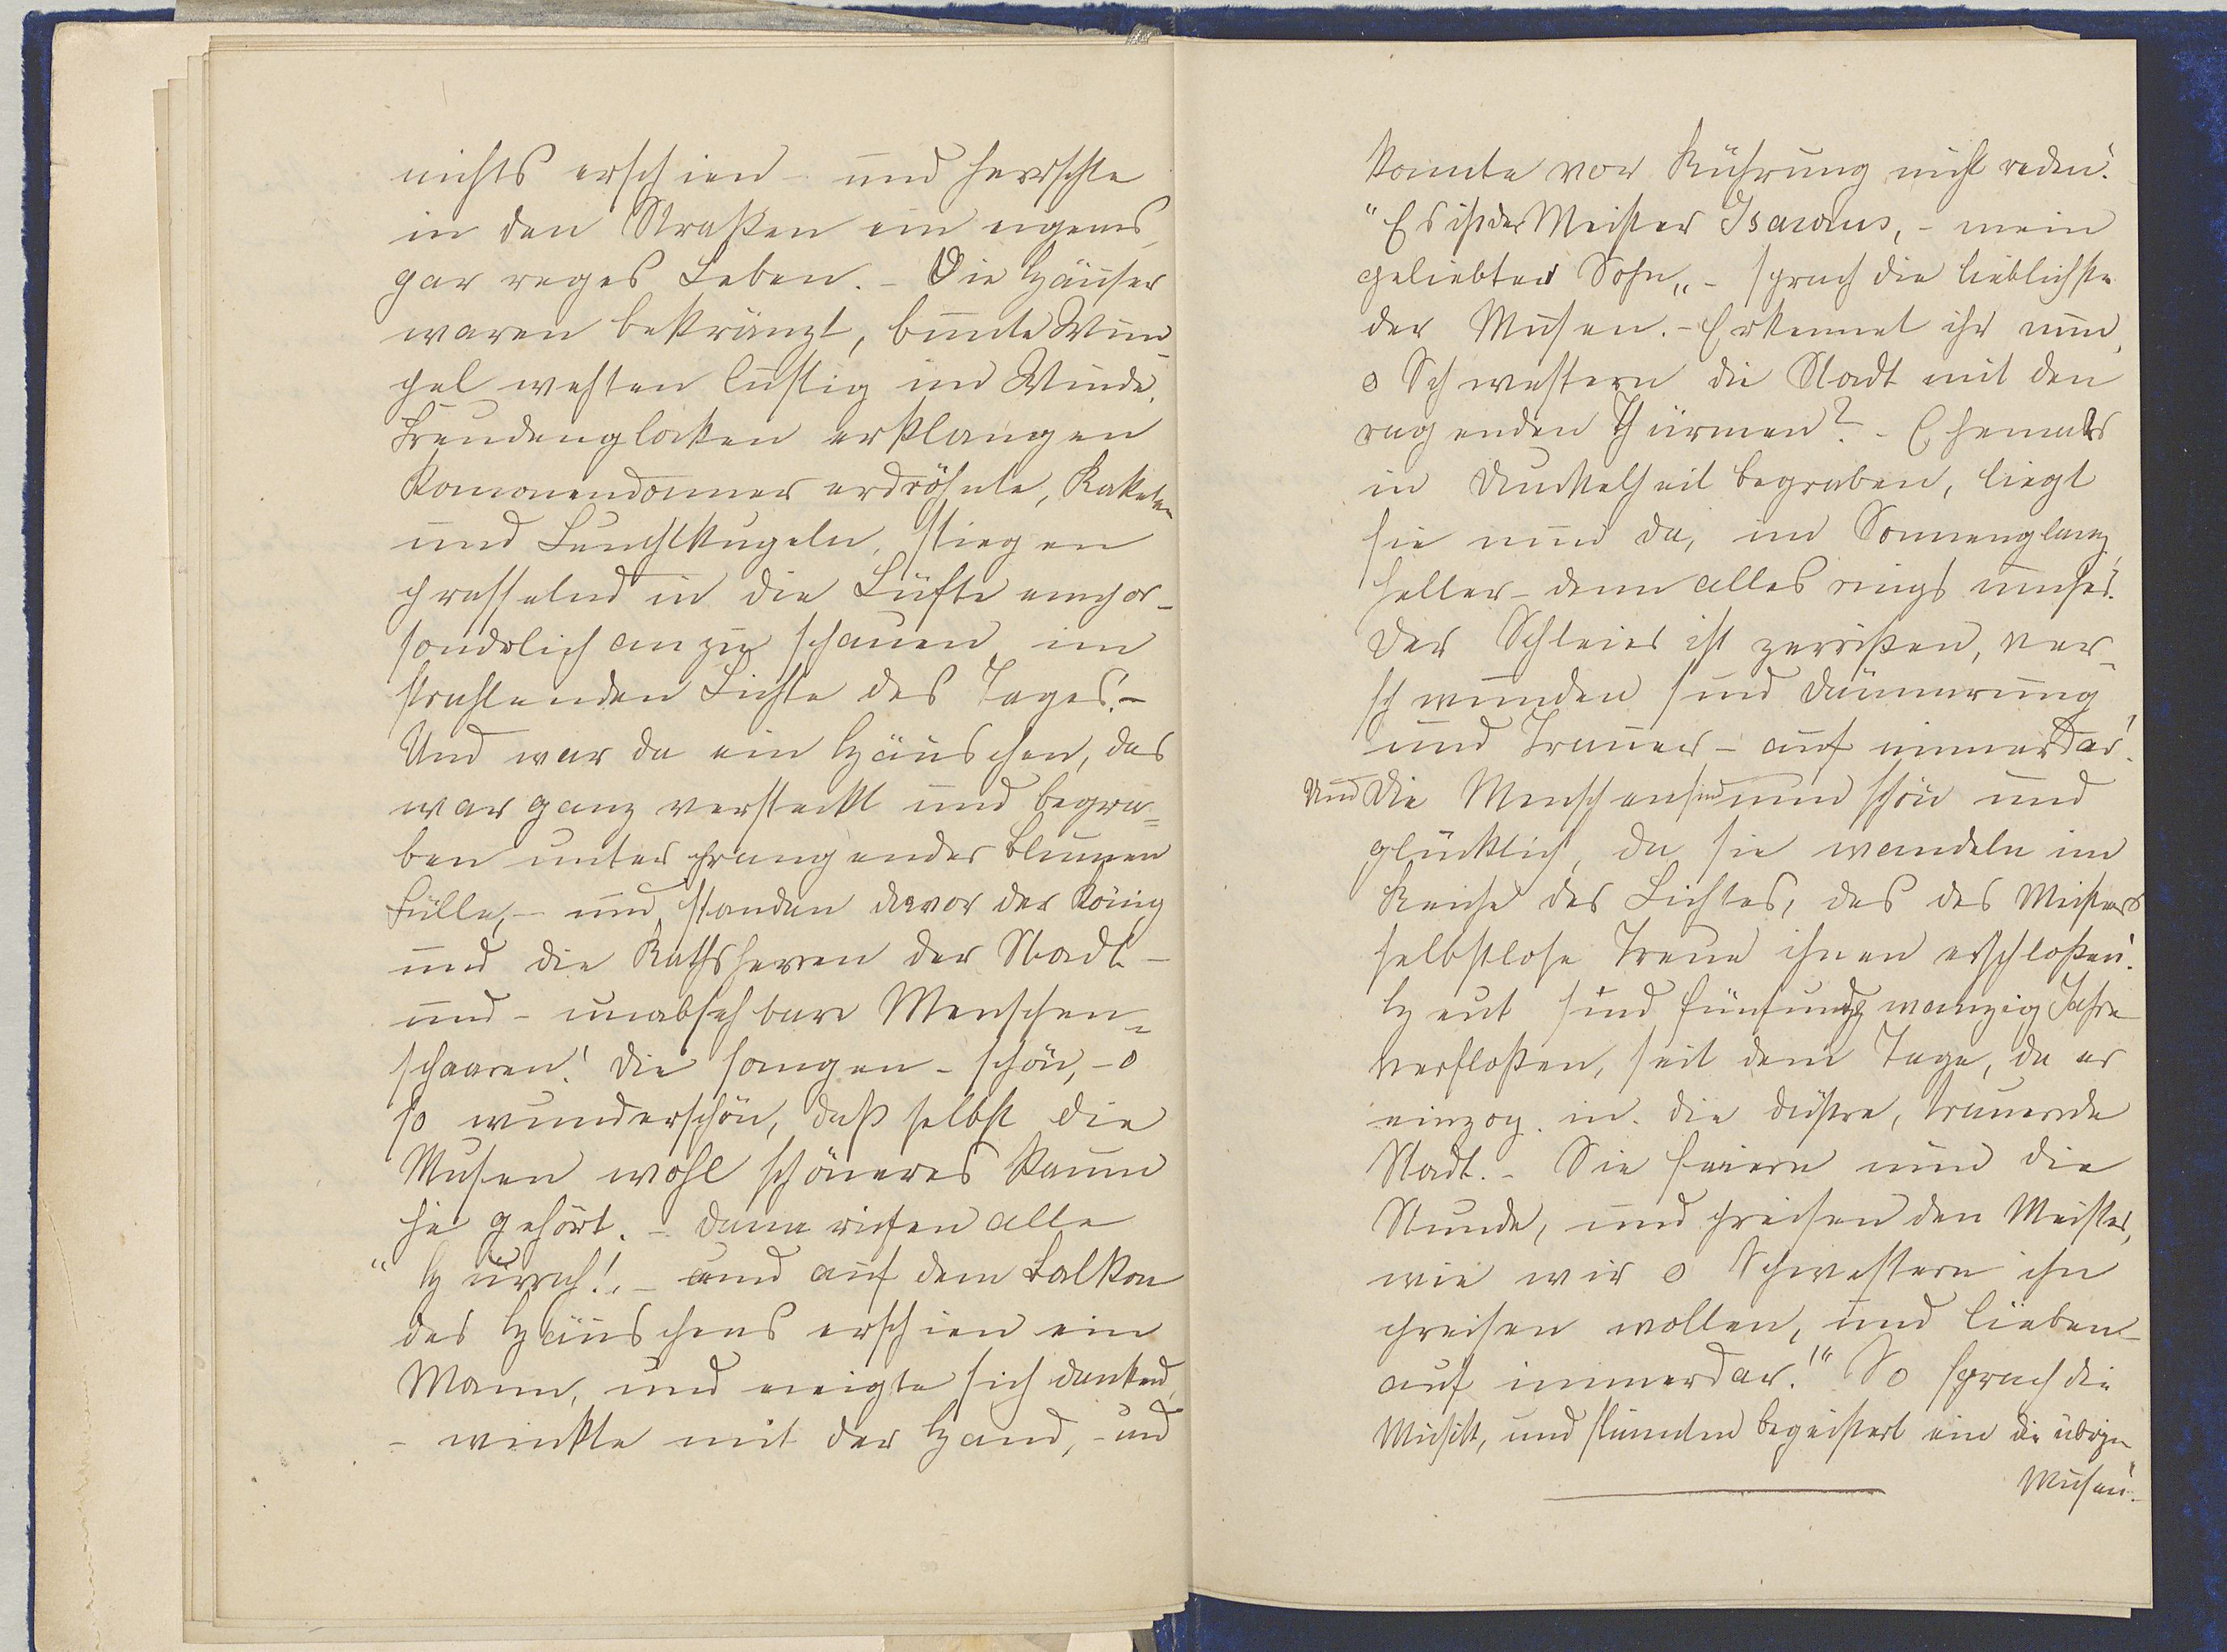 nichts erschien – und herrschte
in den Straßen ein eigenes,
gar reges Leben. – Die Häuser
waren bekränzt, bunte Wim-
pel wehten lustig im Winde,
Freudenglocken erklangen
Kanonendonner erdröhnte, Raketen
und Leuchtkugeln, stiegen
prasselnd in die Lüfte empor –
sonderlich anzu schauen im
strahlenden Lichte des Tages. –
Und war da ein Häuschen, das
war ganz versteckt und begra=
ben unter prangender Blumen
Fülle, – und standen davor der König
und die Rathsherren der Stadt –
und – unabsehbare Menschen=
schaaren! Die sangen – schön, – o
so wunderschön, daß selbst die
Musen wohl schöneres kaum
je gehört. – Dann riefen alle
"Hurrah!" – und auf dem Balkon
des Häuschens erschien ein
Mann, und neigte sich dankend,
– winkte mit der Hand, – und
konnte vor Rührung nicht reden!
"Es ist der Meister Isaraius, – mein
geliebter Sohn„ – sprach die lieblichste
der Musen. – Erkennet ihr nun,
o Schwestern die Stadt mit den
ragenden Thürmen? – Ehemals
in Dunkelheit begraben, liegt
sie nun da, im Sonnenglanz,
heller – denn alles rings umher.
Der Schleier ist zerrißen, ver-
schwunden sind Dämmerung
und Trauer – auf immerdar!
Und die Menschen sind nun schön und
glücklich, da sie wandeln im
Reiche des Lichtes, das des Meisters
selbstlose Treue ihnen erschloßen!
Heut sind fünfundzwanzig Jahre
verfloßen, seit dem Tage, da er
einzog in die düstre, trauernde
Stadt. – Sie feiern nun die
Stunde, und preisen den Meister,
wie wir o Schwestern ihn
preisen wollen, und lieben –
auf immerdar!" So sprach die
Musik, und stimmten begeistert ein die übrigen
Musen!